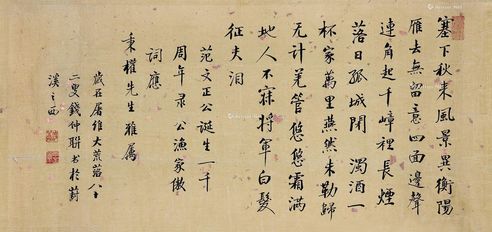 塞下秋來風景異衡陽
雁去無留意四面邊聲
連角起千嶂裡長煙
落日孤城閉 濁酒一
杯家萬里燕然未勒歸
无計羌管悠悠霜滿
地人不寐將軍白髮
征夫淚
范文正公誕生一千
周年录公漁家傲
詞應
秉權先生雅屬
歲在屠維大荒落八十
二叟錢仲聯书於葑
溪之西